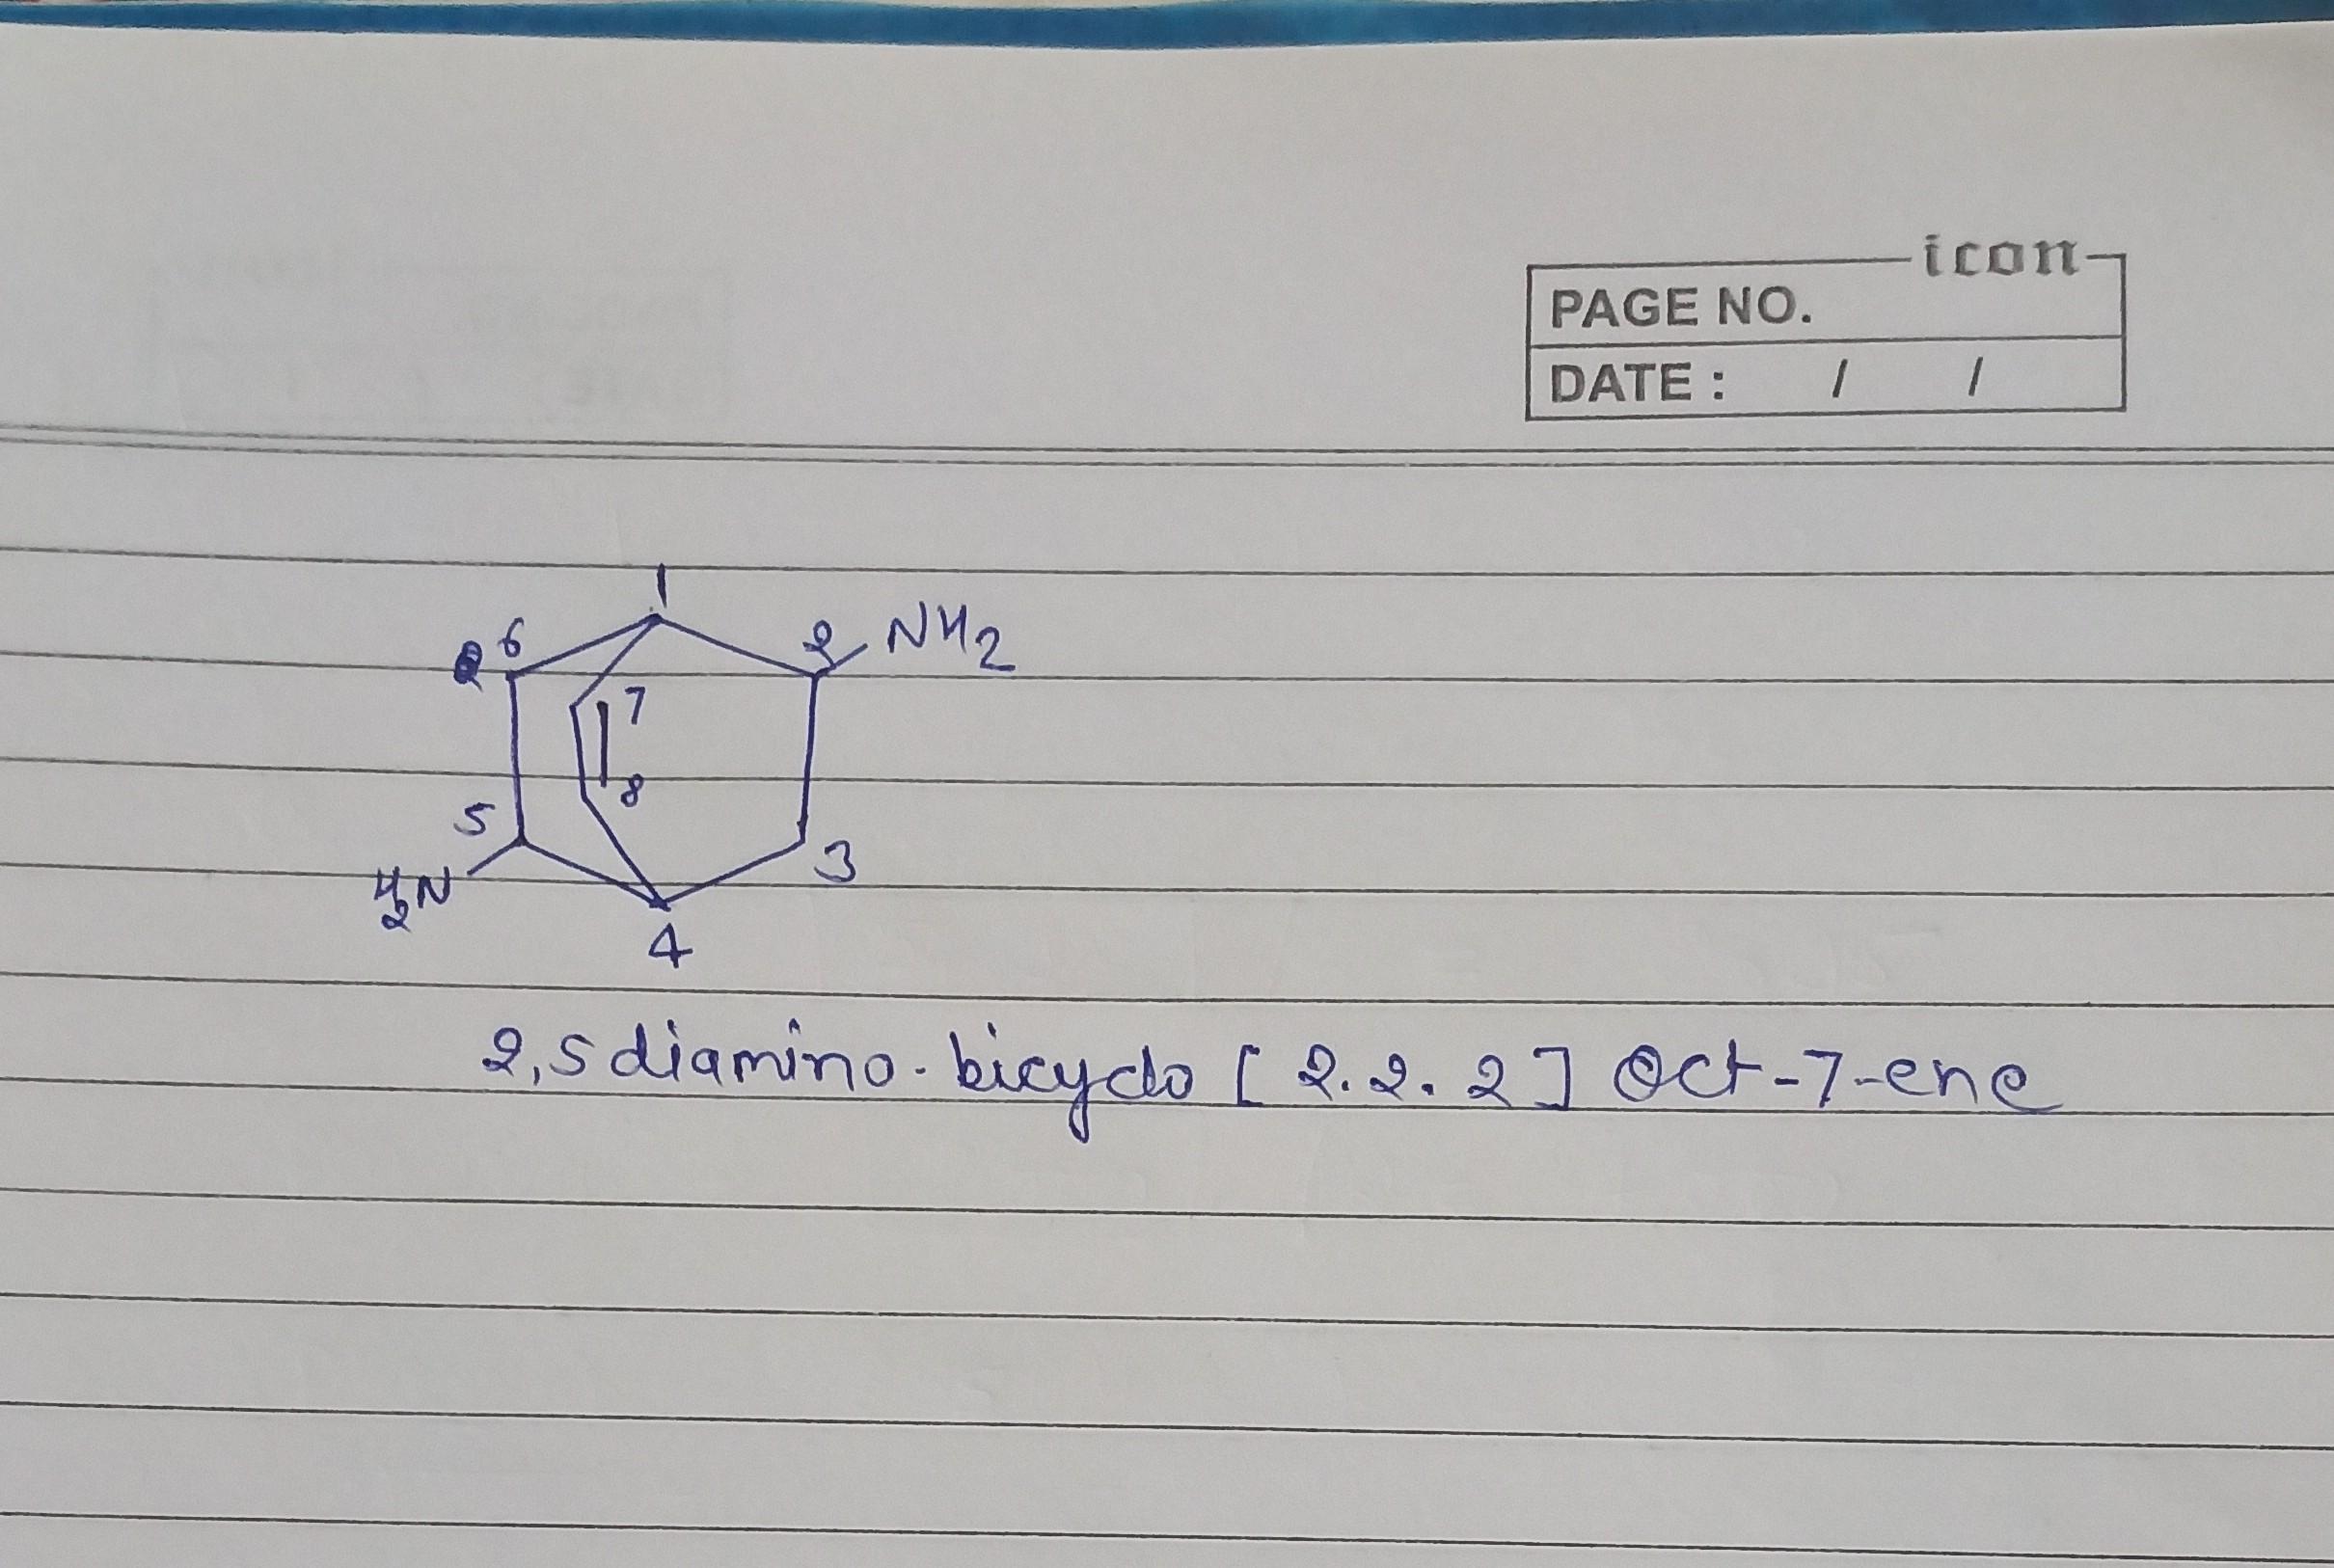 icon
PAGE NO.
DATE : / /
1
6 2 NH2
7
8
5
3
H2N
4
2,5 diamino-bicyclo [2.2.2] Oct-7-ene